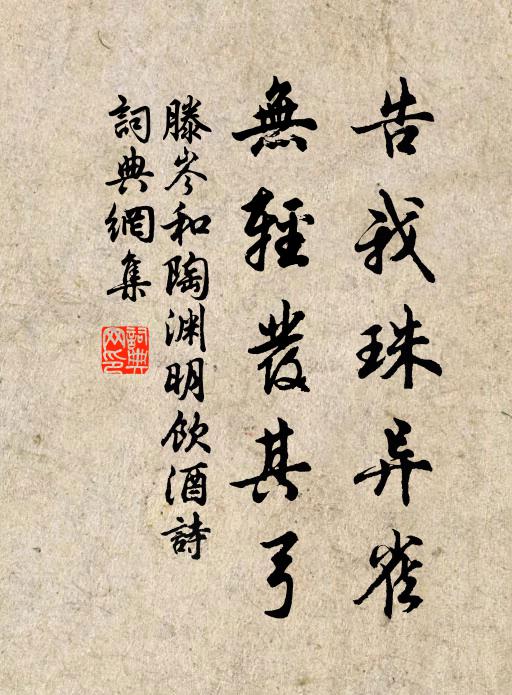 告我珠异雀
無輕發其弓
滕岑和陶渊明飲酒詩
詞典網集
詞典网印